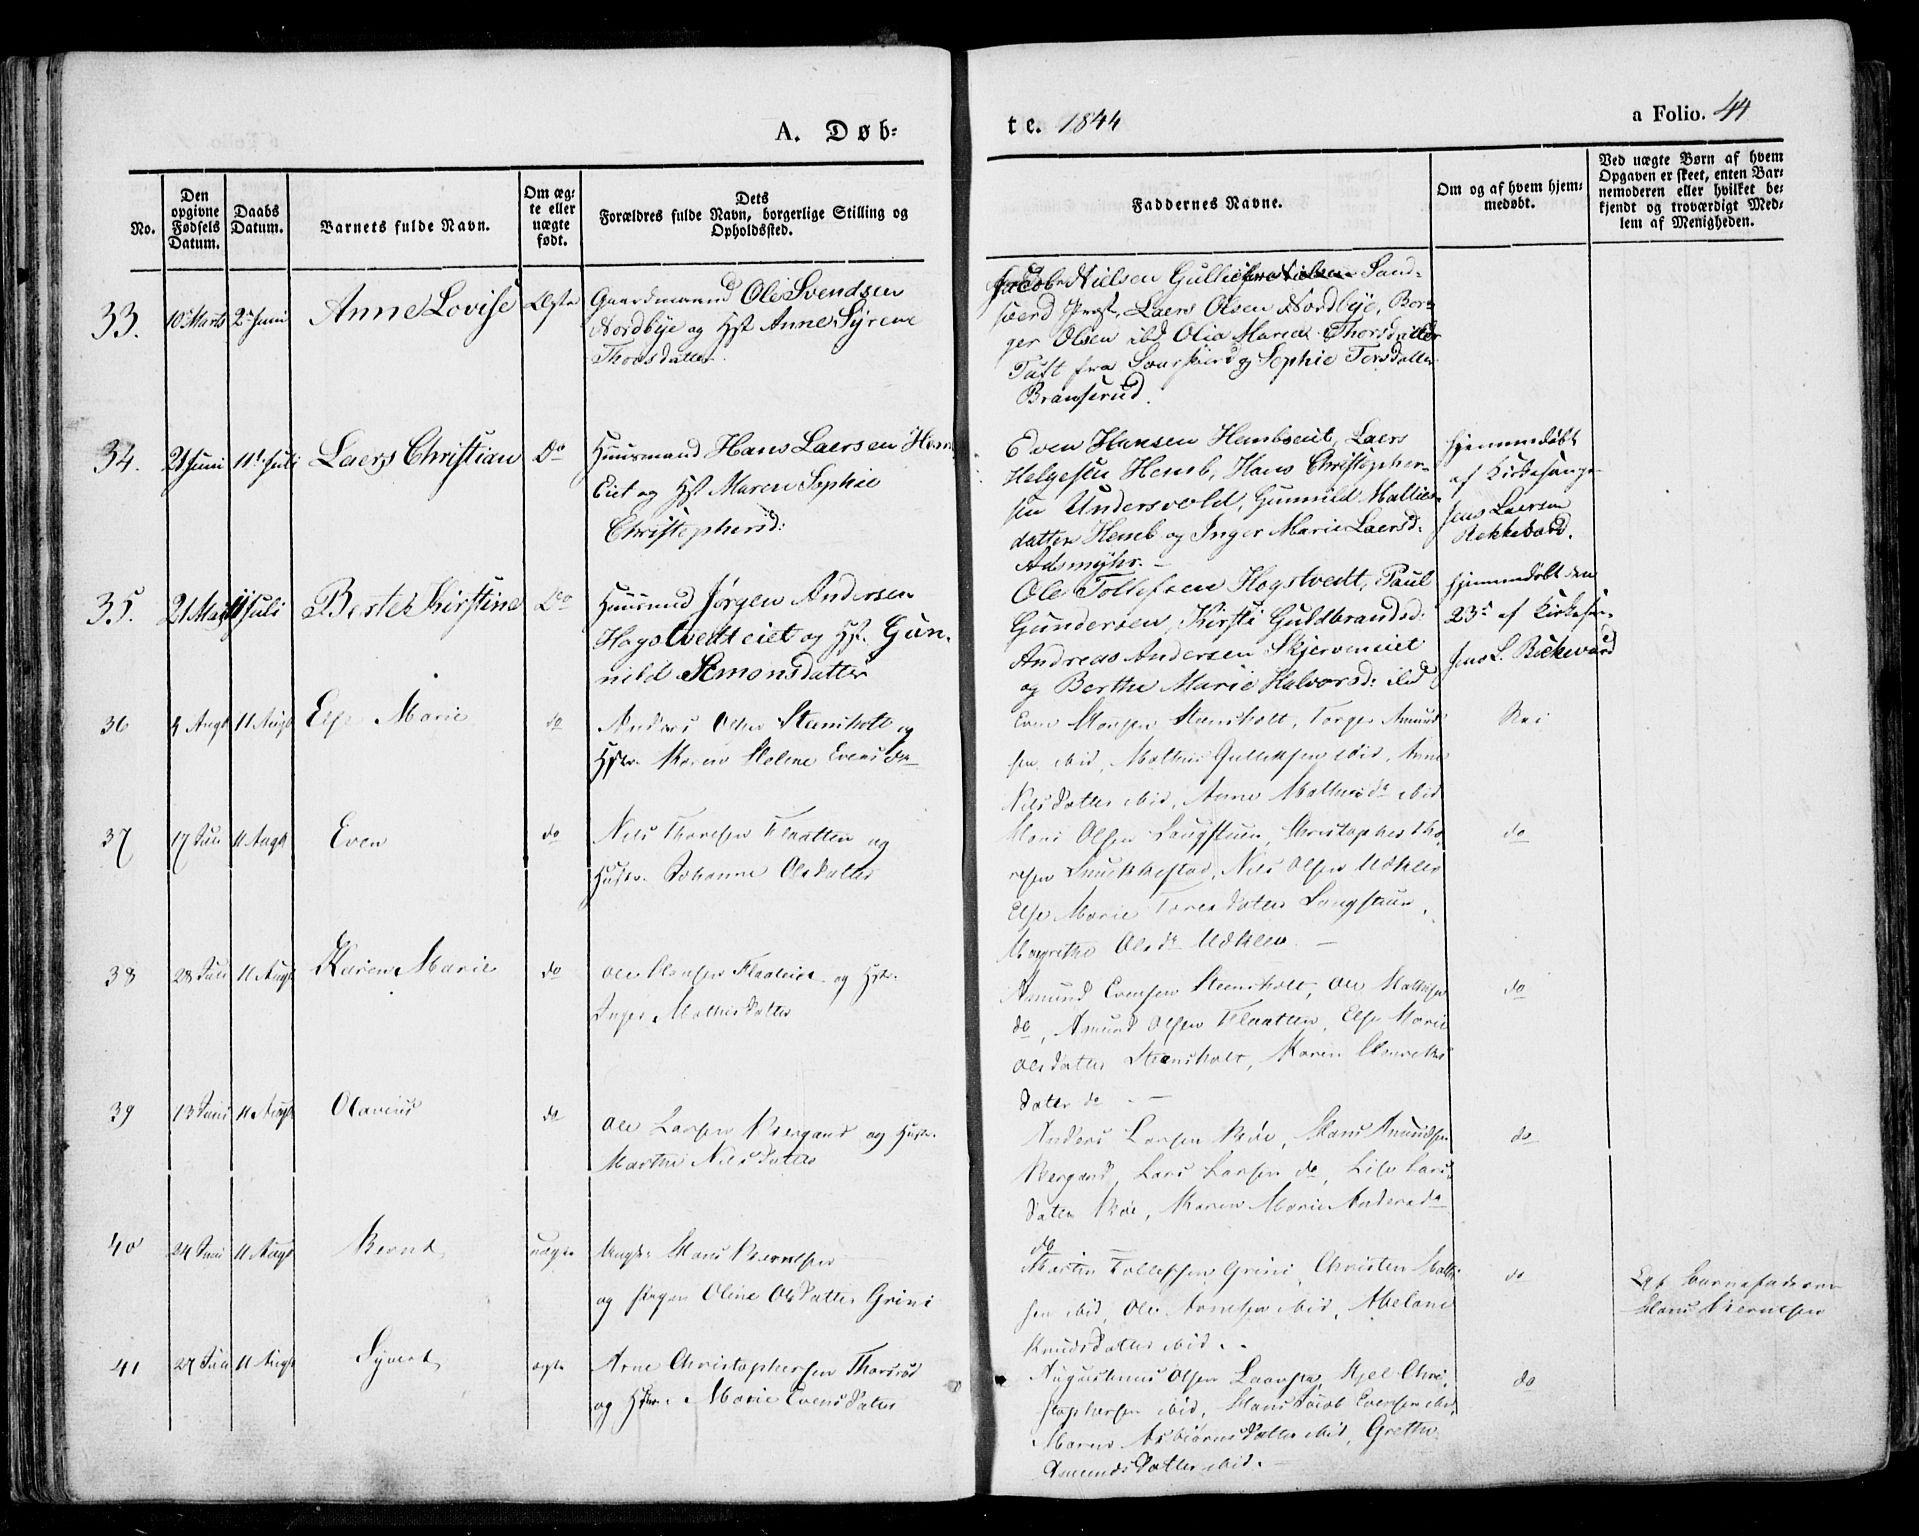 A. Døb-
te. 1844
a Folio. 44
No.
Den opgivne Fødsels Datum.
Daabs Datum.
Barnets fulde Navn.
Om ægte eller uægte født.
Dets Forældres fulde Navn, borgerlige Stilling og Opholdssted.
Faddernes Navne.
Om og af hvem hjemmedøbt.
Ved uægte Børn af hvem Opgaven er skeet, enten Barnemoderen eller hvilket bekjendt og troværdigt Medlem af Menigheden.
33. 10 Marts 2 Juni Anne Lovise Ægte
Gaardmand Ole Svendsen
Nordbye og Hst Anne Syrene
Thorsdatter
Jacob Nielsen
Præst, Laers Olsen Nordbye, Bør-
ger Olsen ibd Olia Maria Thorsdatter
Tuft fra og Sophie Torsdatter
Branserud.
34. 2 Juni 11 Juli Laers Christian Do
Huusmand Hans Laersen Hem
Eiet og Hst Maren Sophie
Christophersd:
Even Hansen Hembseiet, Laers
Helgesen Hemb, Hans Christopher-
sen Undersvold, Gunnild Mathis-
datter Hemb og Inger Marie Laersd:
Adsmyhr. -
Hjemmedøbt
af Kirkesanger
Jens Laersen
35. 21 Marts Juli Berte Kirstine Do
Huusmd Jørgen Andersen
Hogstvedteiet og Hst. Gun-
nild Simonsdatter
Ole Tollefsen Hogstvedt, Paul
Gundersen, Kirsti Guldbrandsd:
Andreas Andersen Skjerveneiet
og Berthe Marie Halvorsd: ibd
Hjemmedøbt den
23 af Kirkesan-
Jens L.
36 4 Augt 11 Augt Else Marie do
Anders Olsen Steensholt og
Hstr. Maren Helene Evensdr
Even Hansen Steensholt, Torger Amund
sen ibid, Mathis Gulliksen ibid, Anne
Nilsdatter ibid, Anne Mathisdr ibid
Nei
37 17 Juni 11 Augt Even do
Nils Thoresen Flaatten og
Hustr. Johanne Olsdatter
Hans Olsen Langstuen, Christopher Tho-
resen, Nils Olsen
Else Marie Toresdatter Langstuen,
Magrethe Olsdr
do
38 28 Juni 11 Augt Karen Marie do
Ole Hansen Flaateiet og Hstr.
Inger Mathisdatter
Amund Evensen Steensholt, Ole Mathisen
do, Amund Olsen Flaatten, Else Marie
Olsdatter Steensholt, Maren
datter do. -
do
39 13 Juni 11 Augt Olavius do
Ole Larsen Bergand og Hustr.
Marthe Nilsdatter
Anders Larsen Bøe, Hans Amundsen
Bergand, Lars Larsen do, Lise Lars-
datter Bøe, Karen Marie Andersdr
do
do
40 24 Juni 11 Augt Bernt uægte
Ungk. Hans Berntsen
og Pigen Oline Olsdatter Grini
Martin Tollefsen Grini, Christen Mathi
sen ibid, Ole Arnesen ibid, Abelone
Knudsdatter ibid. -
do
Barnefaderen
Hans Berntsen
41 27 Juni 11 Augt Syvert ægte
Arne Christophersen Thorsrød
og Hstr. Marie Evensdatter
Augustinus Olsen, Kjel Chri-
stophersen ibid, Hans Jacob Evensen ibid
Maren Asbiørnsdatter ibid, Grethe
Amundsdatter ibid. -
do